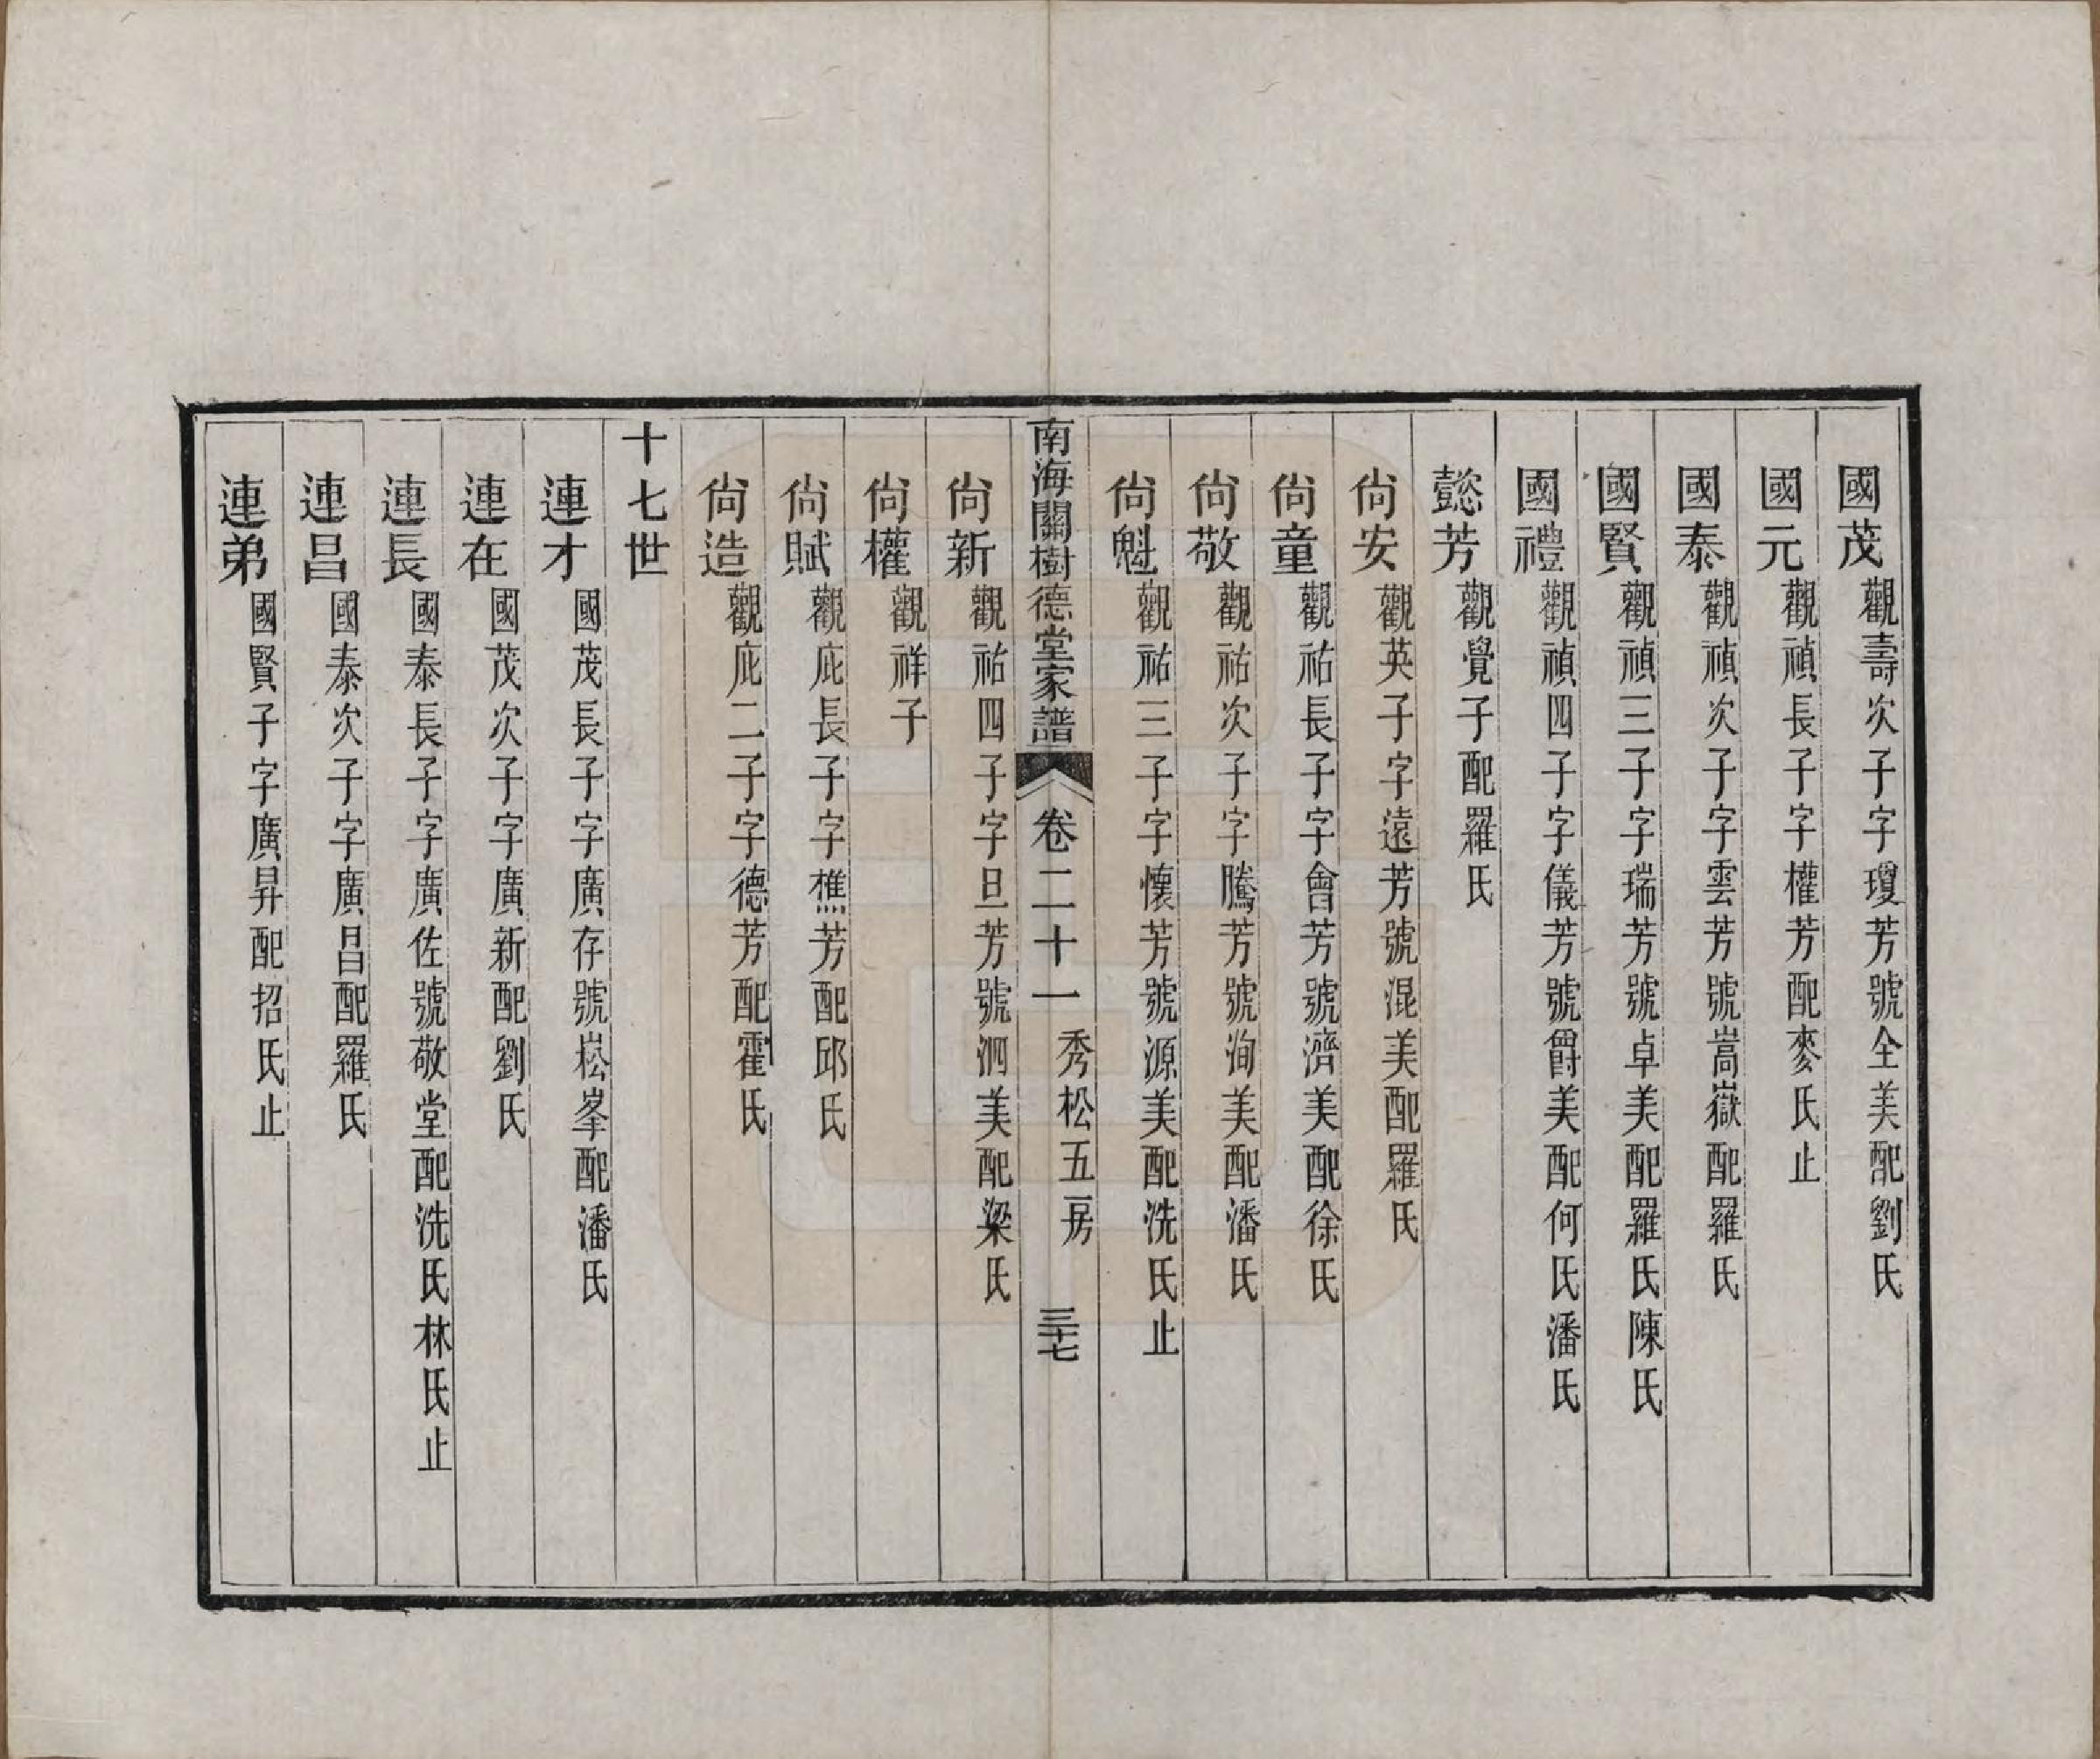 國茂觀壽次子字瓊芳號全美配劉氏
國元觀禎長子字權芳配麥氏止
國泰觀禎次子字雲芳號嵩嶽配羅氏
國賢觀禎三子字瑞芳號卓美配羅氏陳氏
國禮觀禎四子字儀芳號爵美配何氏潘氏
懿芳觀覺子配羅氏
尙安觀英子字遠芳號混美配羅氏
尙童觀祐長子字會芳號濟美配徐氏
尙敬觀祐次子字騰芳號洵美配潘氏
尙魁觀祐三子字懷芳號源美配洗氏止
南海關樹德堂家譜 卷二十一 秀松五房 三十七
尙新觀祐四子字旦芳號泗美配梁氏
尙權觀祥子
尙賦觀庇長子字樵芳配邱氏
尙造觀庇二子字德芳配霍氏
十七世
連才國茂長子字廣存號崧峯配潘氏
連在國茂次子字廣新配劉氏
連長國泰長子字廣佐號敬堂配洗氏林氏止
連昌國泰次子字廣昌配羅氏
連弟國賢子字廣昇配招氏止